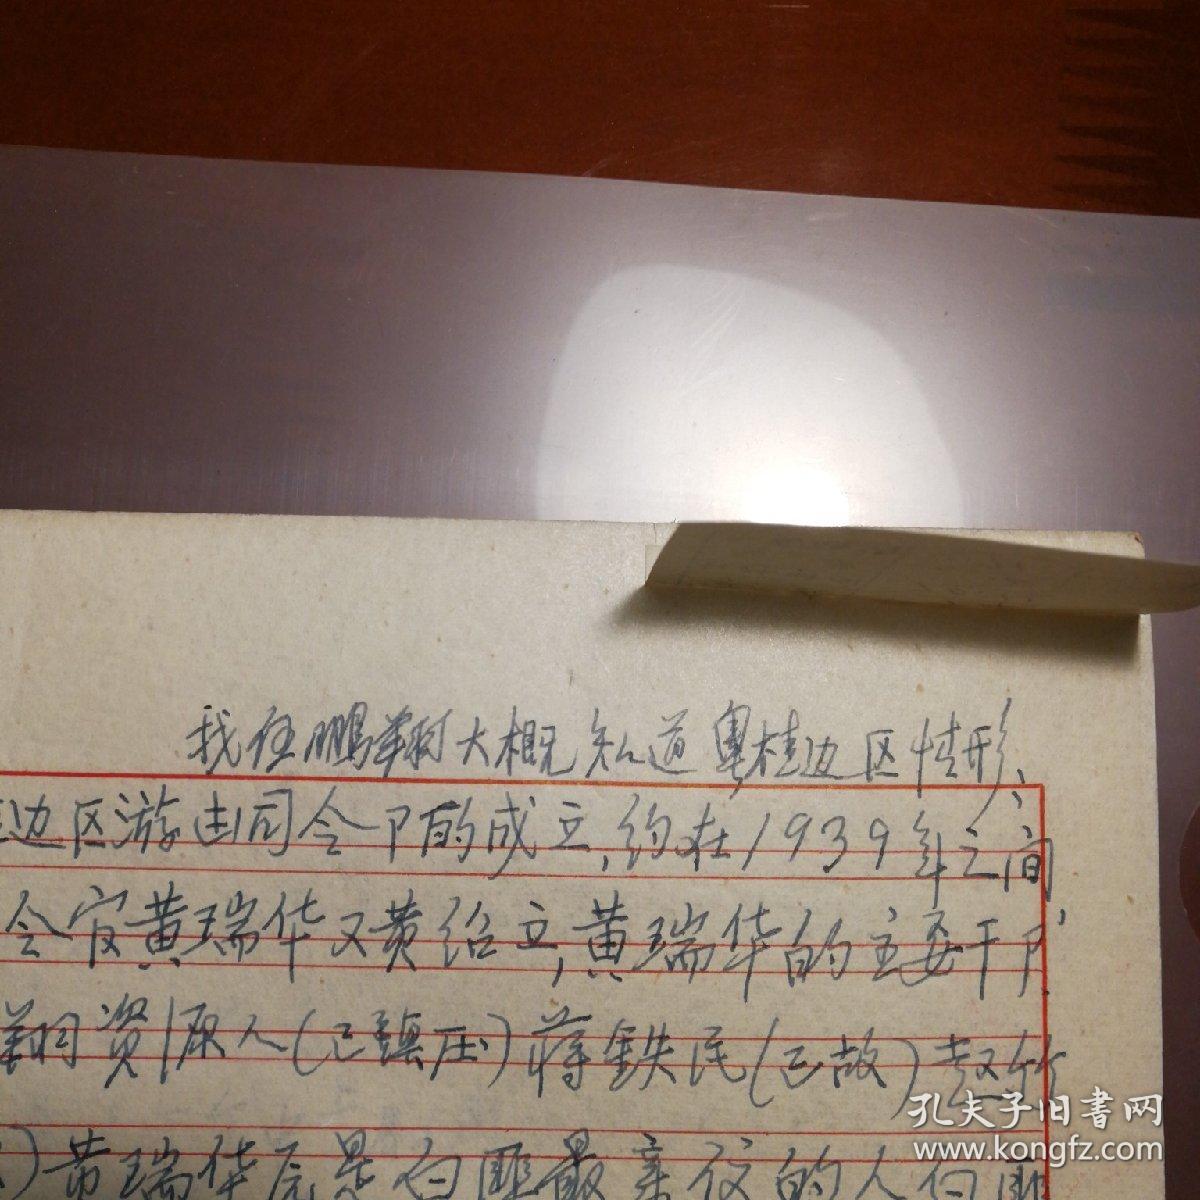 我任鹏翔大概知道粤桂边区情形、
边区游击司令卩的成立,约在1939年之间,
令官黄瑞华又黄绍立,黄瑞华的主要干卩
翔资源人(已镇压)蒋铁民(已故)赵竹
)黄瑞华 是白匪最亲 的人白匪
孔夫子旧书网
www.kongfz.com